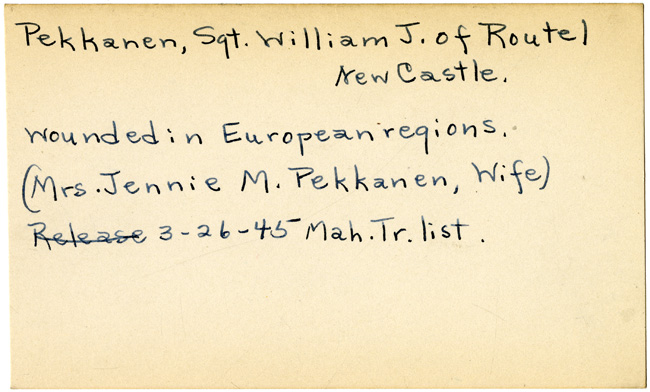 Pekkanen, Sgt. William J. of Route 1
New Castle.
wounded in European regions.
(Mrs. Jennie M. Pekkanen, Wife)
Release 3-26-45 Mah. Tr. list.